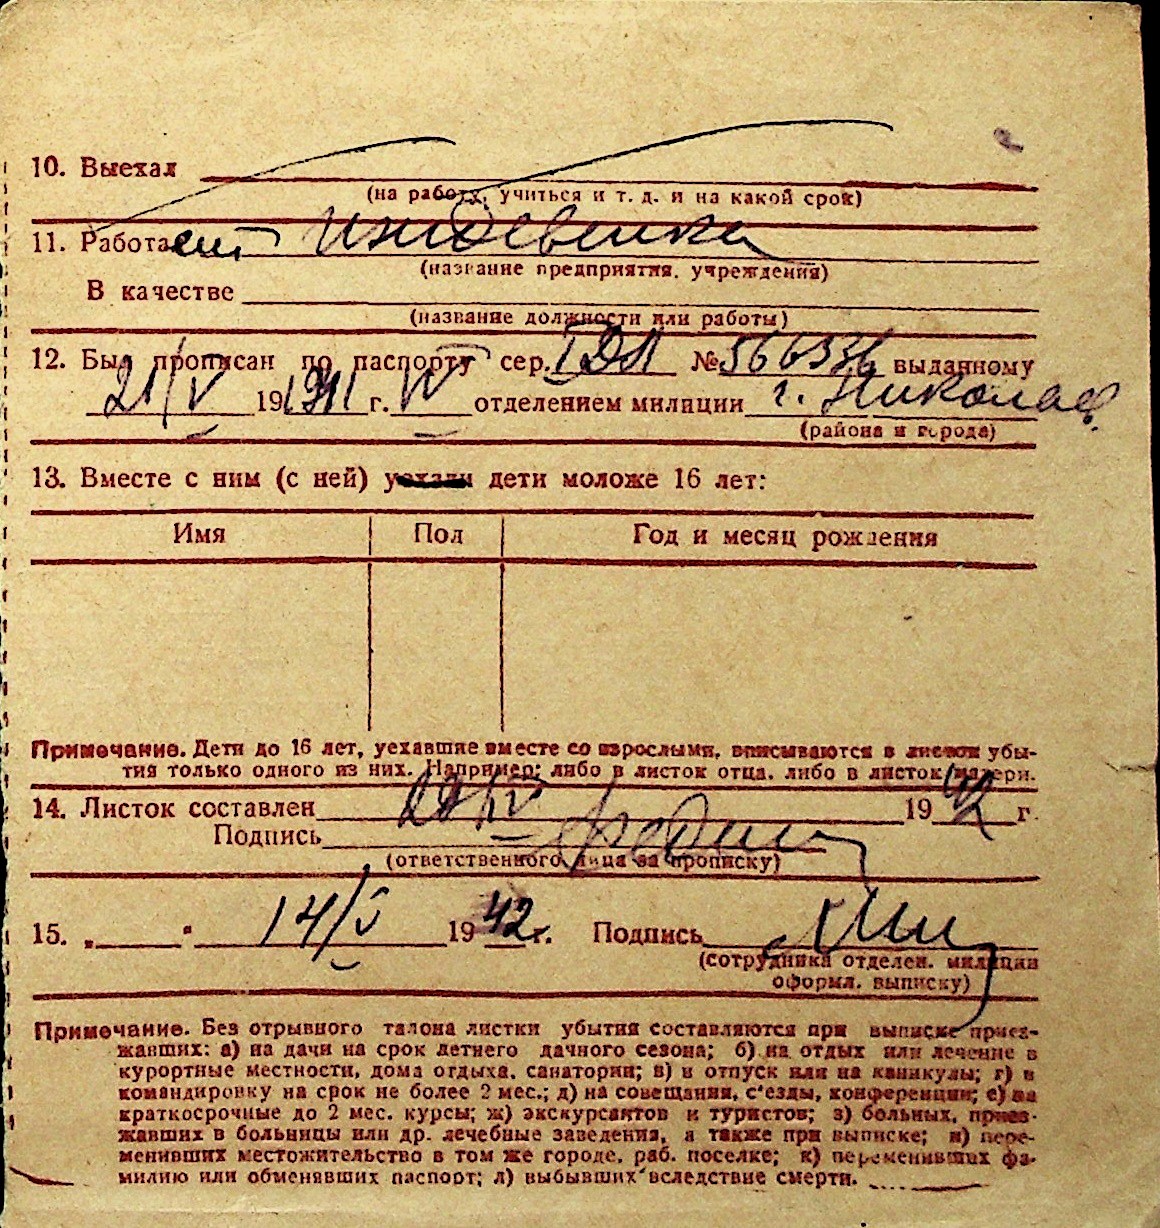 10. Выехал
(на работу, учиться и т. д. и на какой срок)
11. Работает иждевенка
(название предприятия, учреждения)
В качестве
(название должности или работы)
12. Был прописан по паспорту сер. № 566336 выданному
21/V 1941 г. IV отделением милиции г. Николаев.
(района и города)
13. Вместе с ним (с ней) уехали дети моложе 16 лет:
Имя Пол Год и месяц рождения
Примечание. Дети до 16 лет, уехавшие вместе со взрослыми, вписываются в листок убы-
тия только одного из них. Например: либо в листок отца, либо в листок матери.
14. Листок составлен 1942 г.
Подпись
(ответственного лица за прописку)
15. „ " 14/V 1942 г. Подпись
(сотрудника отделен. милиции
оформл. выписку)
Примечание. Без отрывного талона листки убытия составляются при выписке приез-
жавших: а) на дачи на срок летнего дачного сезона; б) на отдых или лечение в
курортные местности, дома отдыха, санатории; в) в отпуск или на каникулы; г) в
командировку на срок не более 2 мес.; д) на совещания, с'езды, конференции; е) на
краткосрочные до 2 мес. курсы; ж) экскурсантов и туристов; з) больных, приез-
жавших в больницы или др. лечебные заведения, а также при выписке; и) пере-
менивших местожительство в том же городе, раб. поселке; к) переменивших фа-
милию или обменявших паспорт; л) выбывших вследствие смерти.